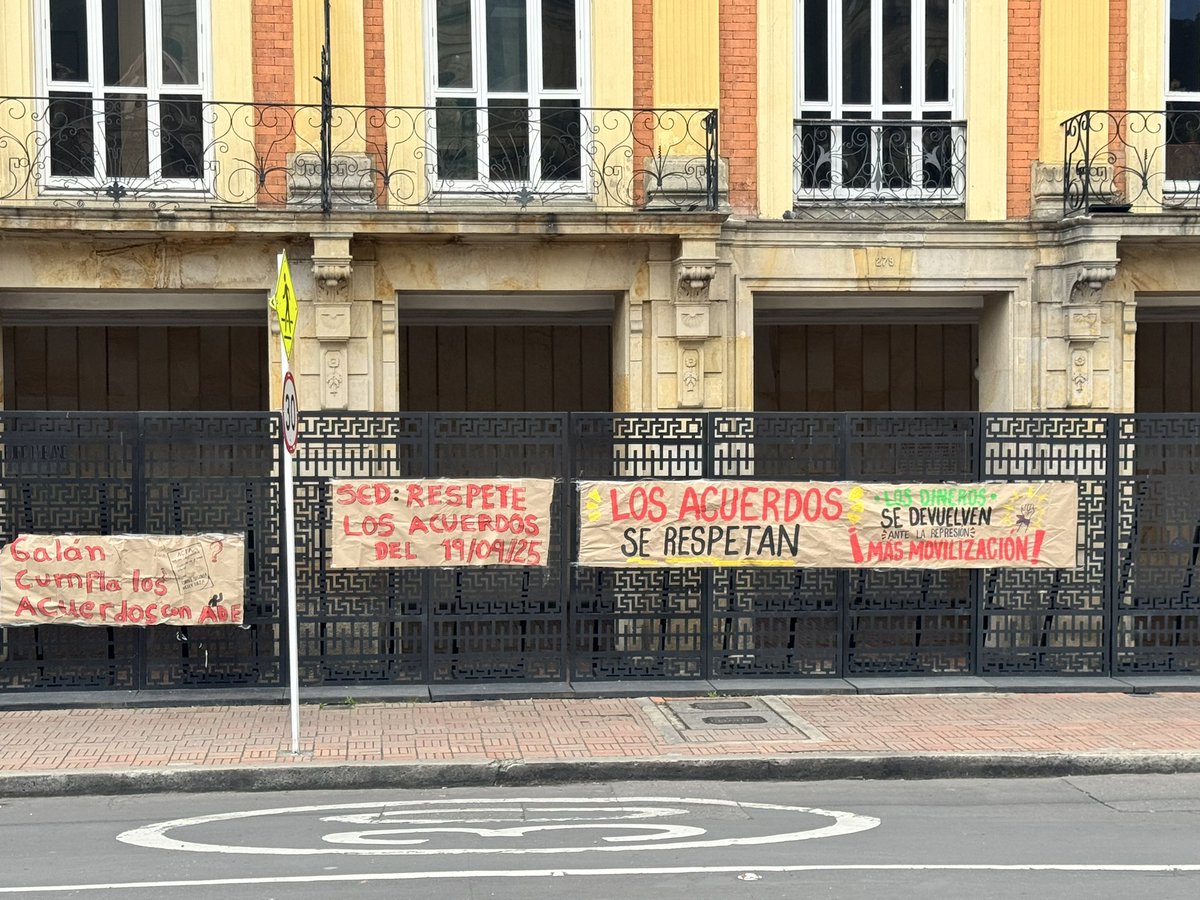 279
30
Galán
?
Cumpla los
Acuerdos con ADE
SCD: RESPETE
LOS ACUERDOS
DEL 19/09/25
LOS ACUERDOS
SE RESPETAN
LOS DINEROS
SE DEVUELVEN
ANTE LA REPRESIÓN
¡MÁS MOVILIZACIÓN!
30